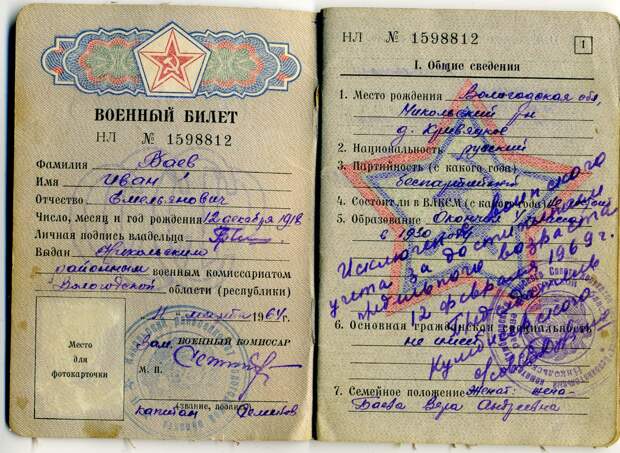 ВОЕННЫЙ БИЛЕТ
НЛ № 1598812
Фамилия Баев
Имя Иван
Отчество Емельянович
Число, месяц и год рождения 12 декабря 1918
Личная подпись владельца
Выдан Никольским
районным военным комиссариатом
Вологодской области (республики)
"11" марта 1964 г.
Место
для
фотокарточки
ВОЕННЫЙ КОМИССАР
М. П.
капитан
(звание, подпись)
НЛ № 1598812
1
I. Общие сведения
1. Место рождения Вологодская обл,
Никольский рн
д. Кривяцкое
2. Национальность русский
3. Партийность (с какого года)
беспартийный
4. Состоял ли в ВЛКСМ (с какого года)
5. Образование Окончил класса
в 1930
Исключен с воинского
учета за достижением
предельного возраста
12 февраля 1969 г.
6. Основная гражданская специальность
не имеет
7. Семейное положение Женат: жена-
Баева Вера Андреевна